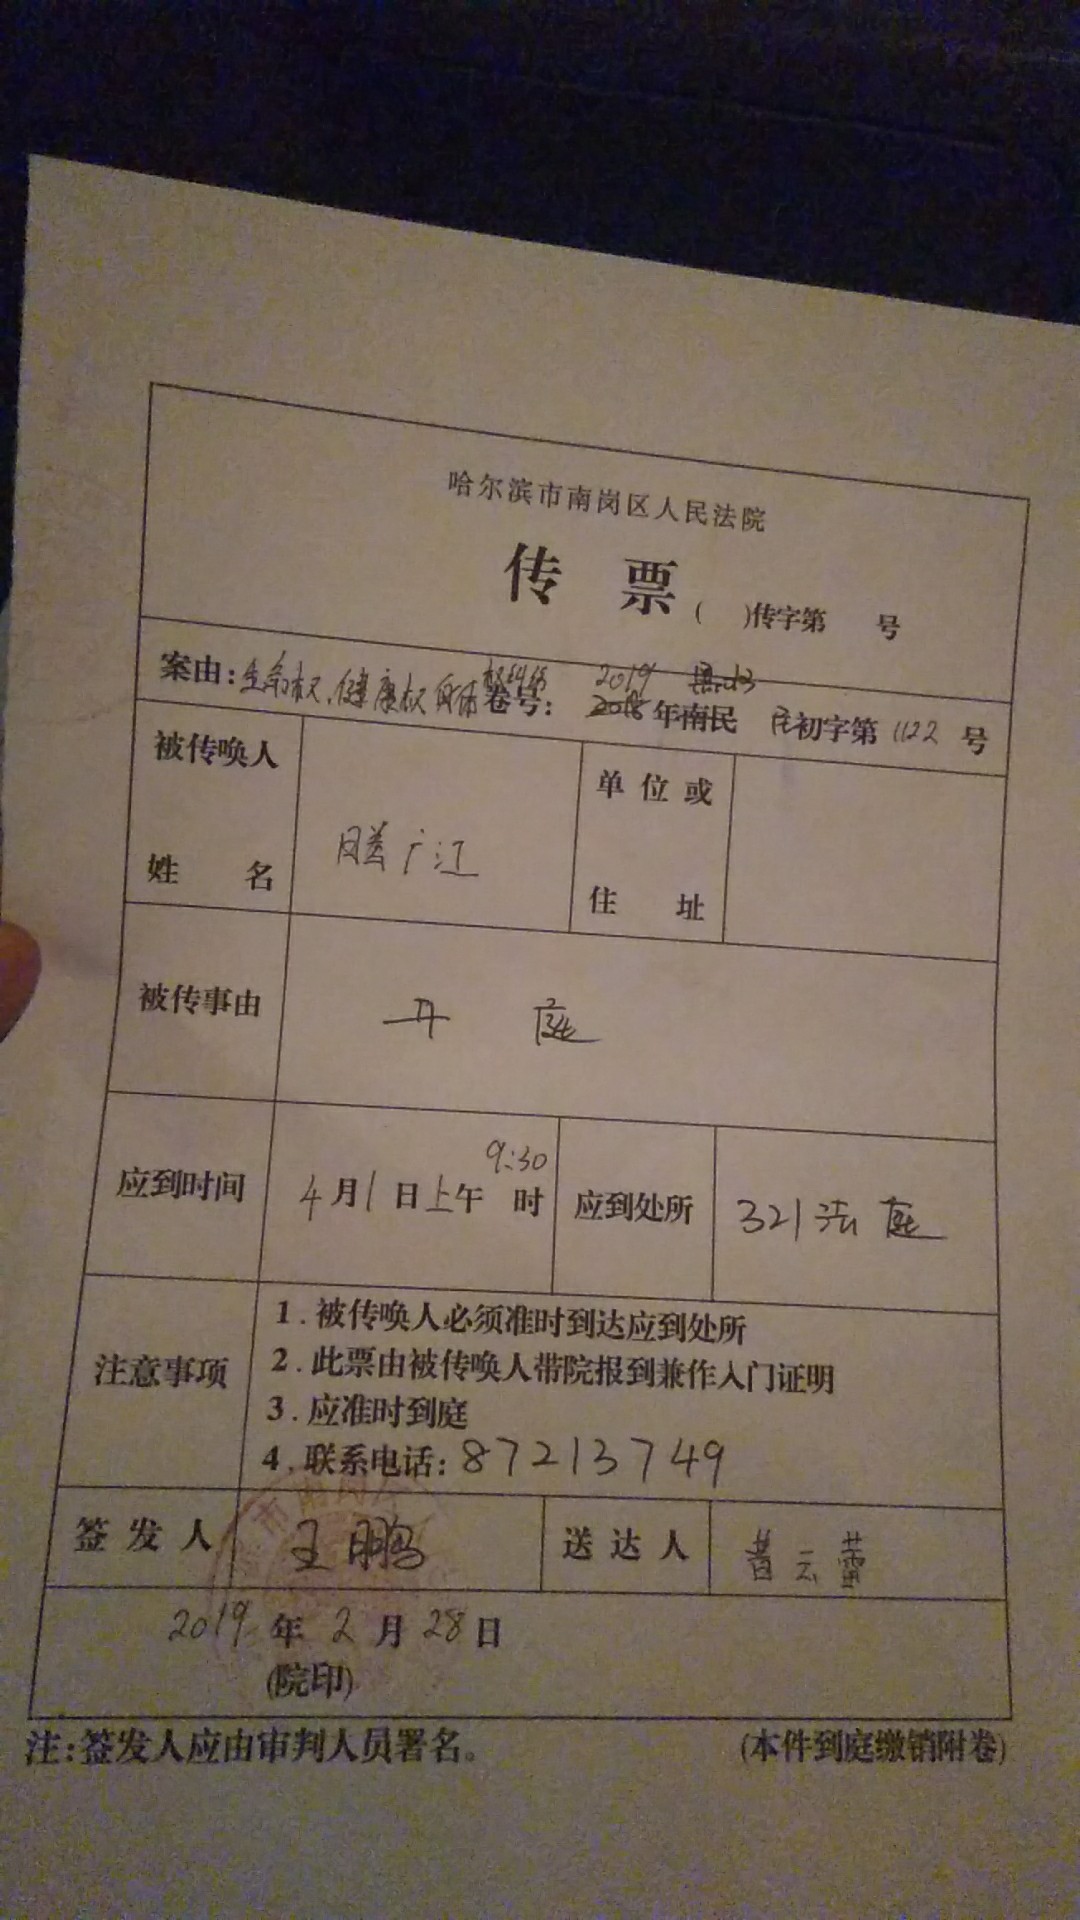 哈尔滨市南岗区人民法院
传 票
( )传字第 号
案由:生命权、健康权身体权纠纷 卷号: 2019 黑0103
2018年南民 民初字第1122号
被传唤人
姓 名
滕广江
单位或
住 址
被传事由
开 庭
应到时间
4月1日上午9:30时
应到处所
321法庭
注意事项
1.被传唤人必须准时到达应到处所
2.此票由被传唤人带院报到兼作入门证明
3.应准时到庭
4.联系电话:87213749
签发人
王鹏
送达人
黄云蕾
2019年2月28日
(院印)
注:签发人应由审判人员署名。
(本件到庭缴销附卷)